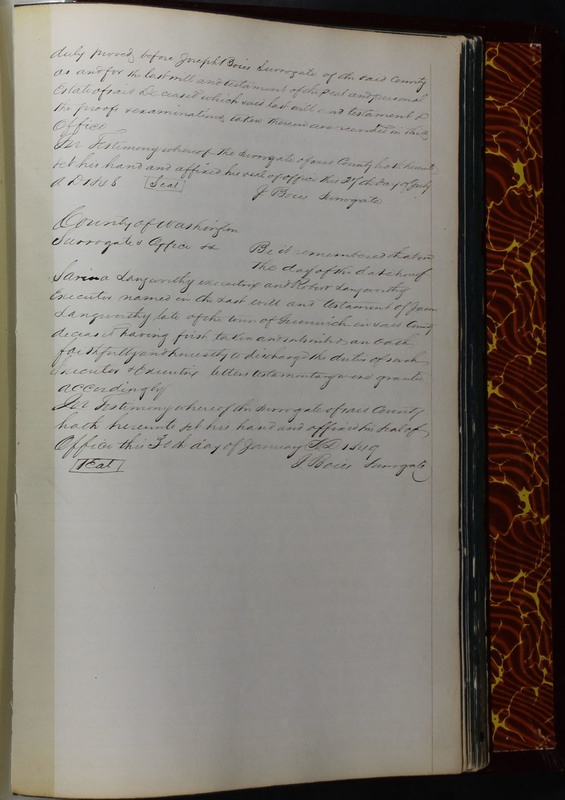 duly proved before Joseph Boies Surrogate of the said County
as and for the last will and testament of the real and personal
Estate of said Deceased which said last will and testament &
the proofs & examinations taken therein are recorded in this
Office
In Testimony whereof the Surrogate of said County hath hereunto
set his hand and affixed his seal of office this 27th day of July
A D 1848 Seal J Boies Surrogate
County of Washington
Surrogates Office ss Be it remembered that on
the day of the date hereof
Langworthy executrix and Langworthy
Executor named in the Last Will and Testament of
Langworthy late of the town of Greenwich in said County
deceased having first taken and subscribed an oath
faithfully and honestly to discharge the duties of such
executor & Executrix letters testamentary were granted
accordingly
In Testimony whereof the Surrogate of said County
hath hereunto set his hand and affixed his Seal of
Office this 30th day of January A D 1849
Seal J Boies Surrogate